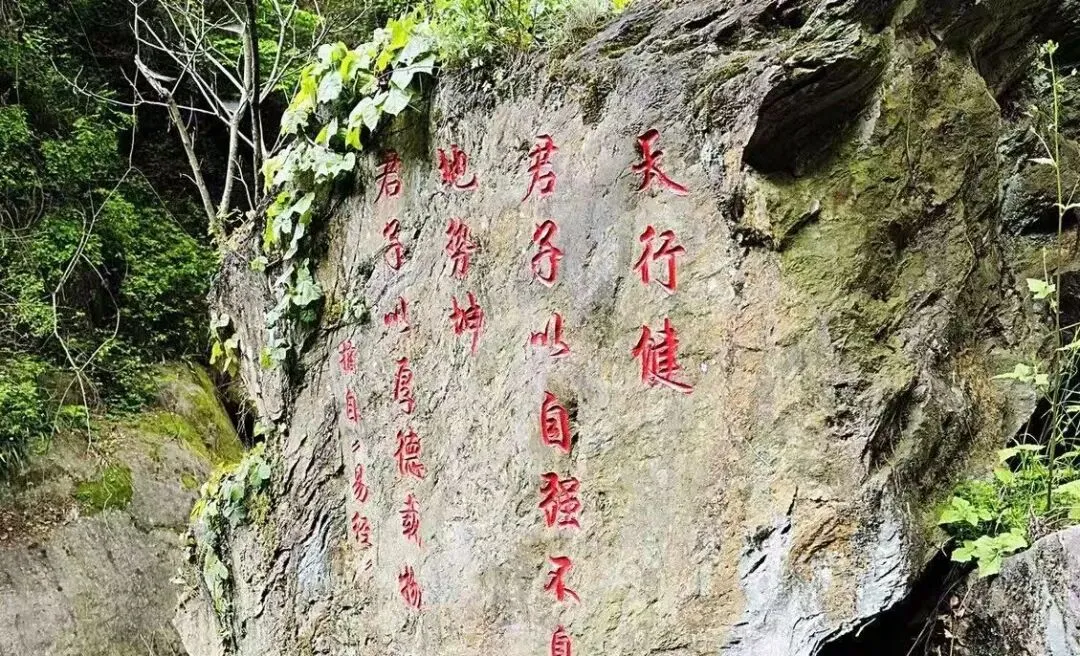 天行健
君子以自强不息
地势坤
君子以厚德载物
摘自“易经”